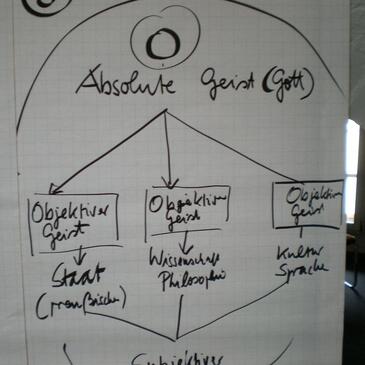 Absolute Geist (Gott)
Objektiver
Geist
Objektiver
Geist
Objektiver
Geist
Staat
(preußische)
Wissenschaft
Philosophie
Kultur
Sprache
Subjektiver